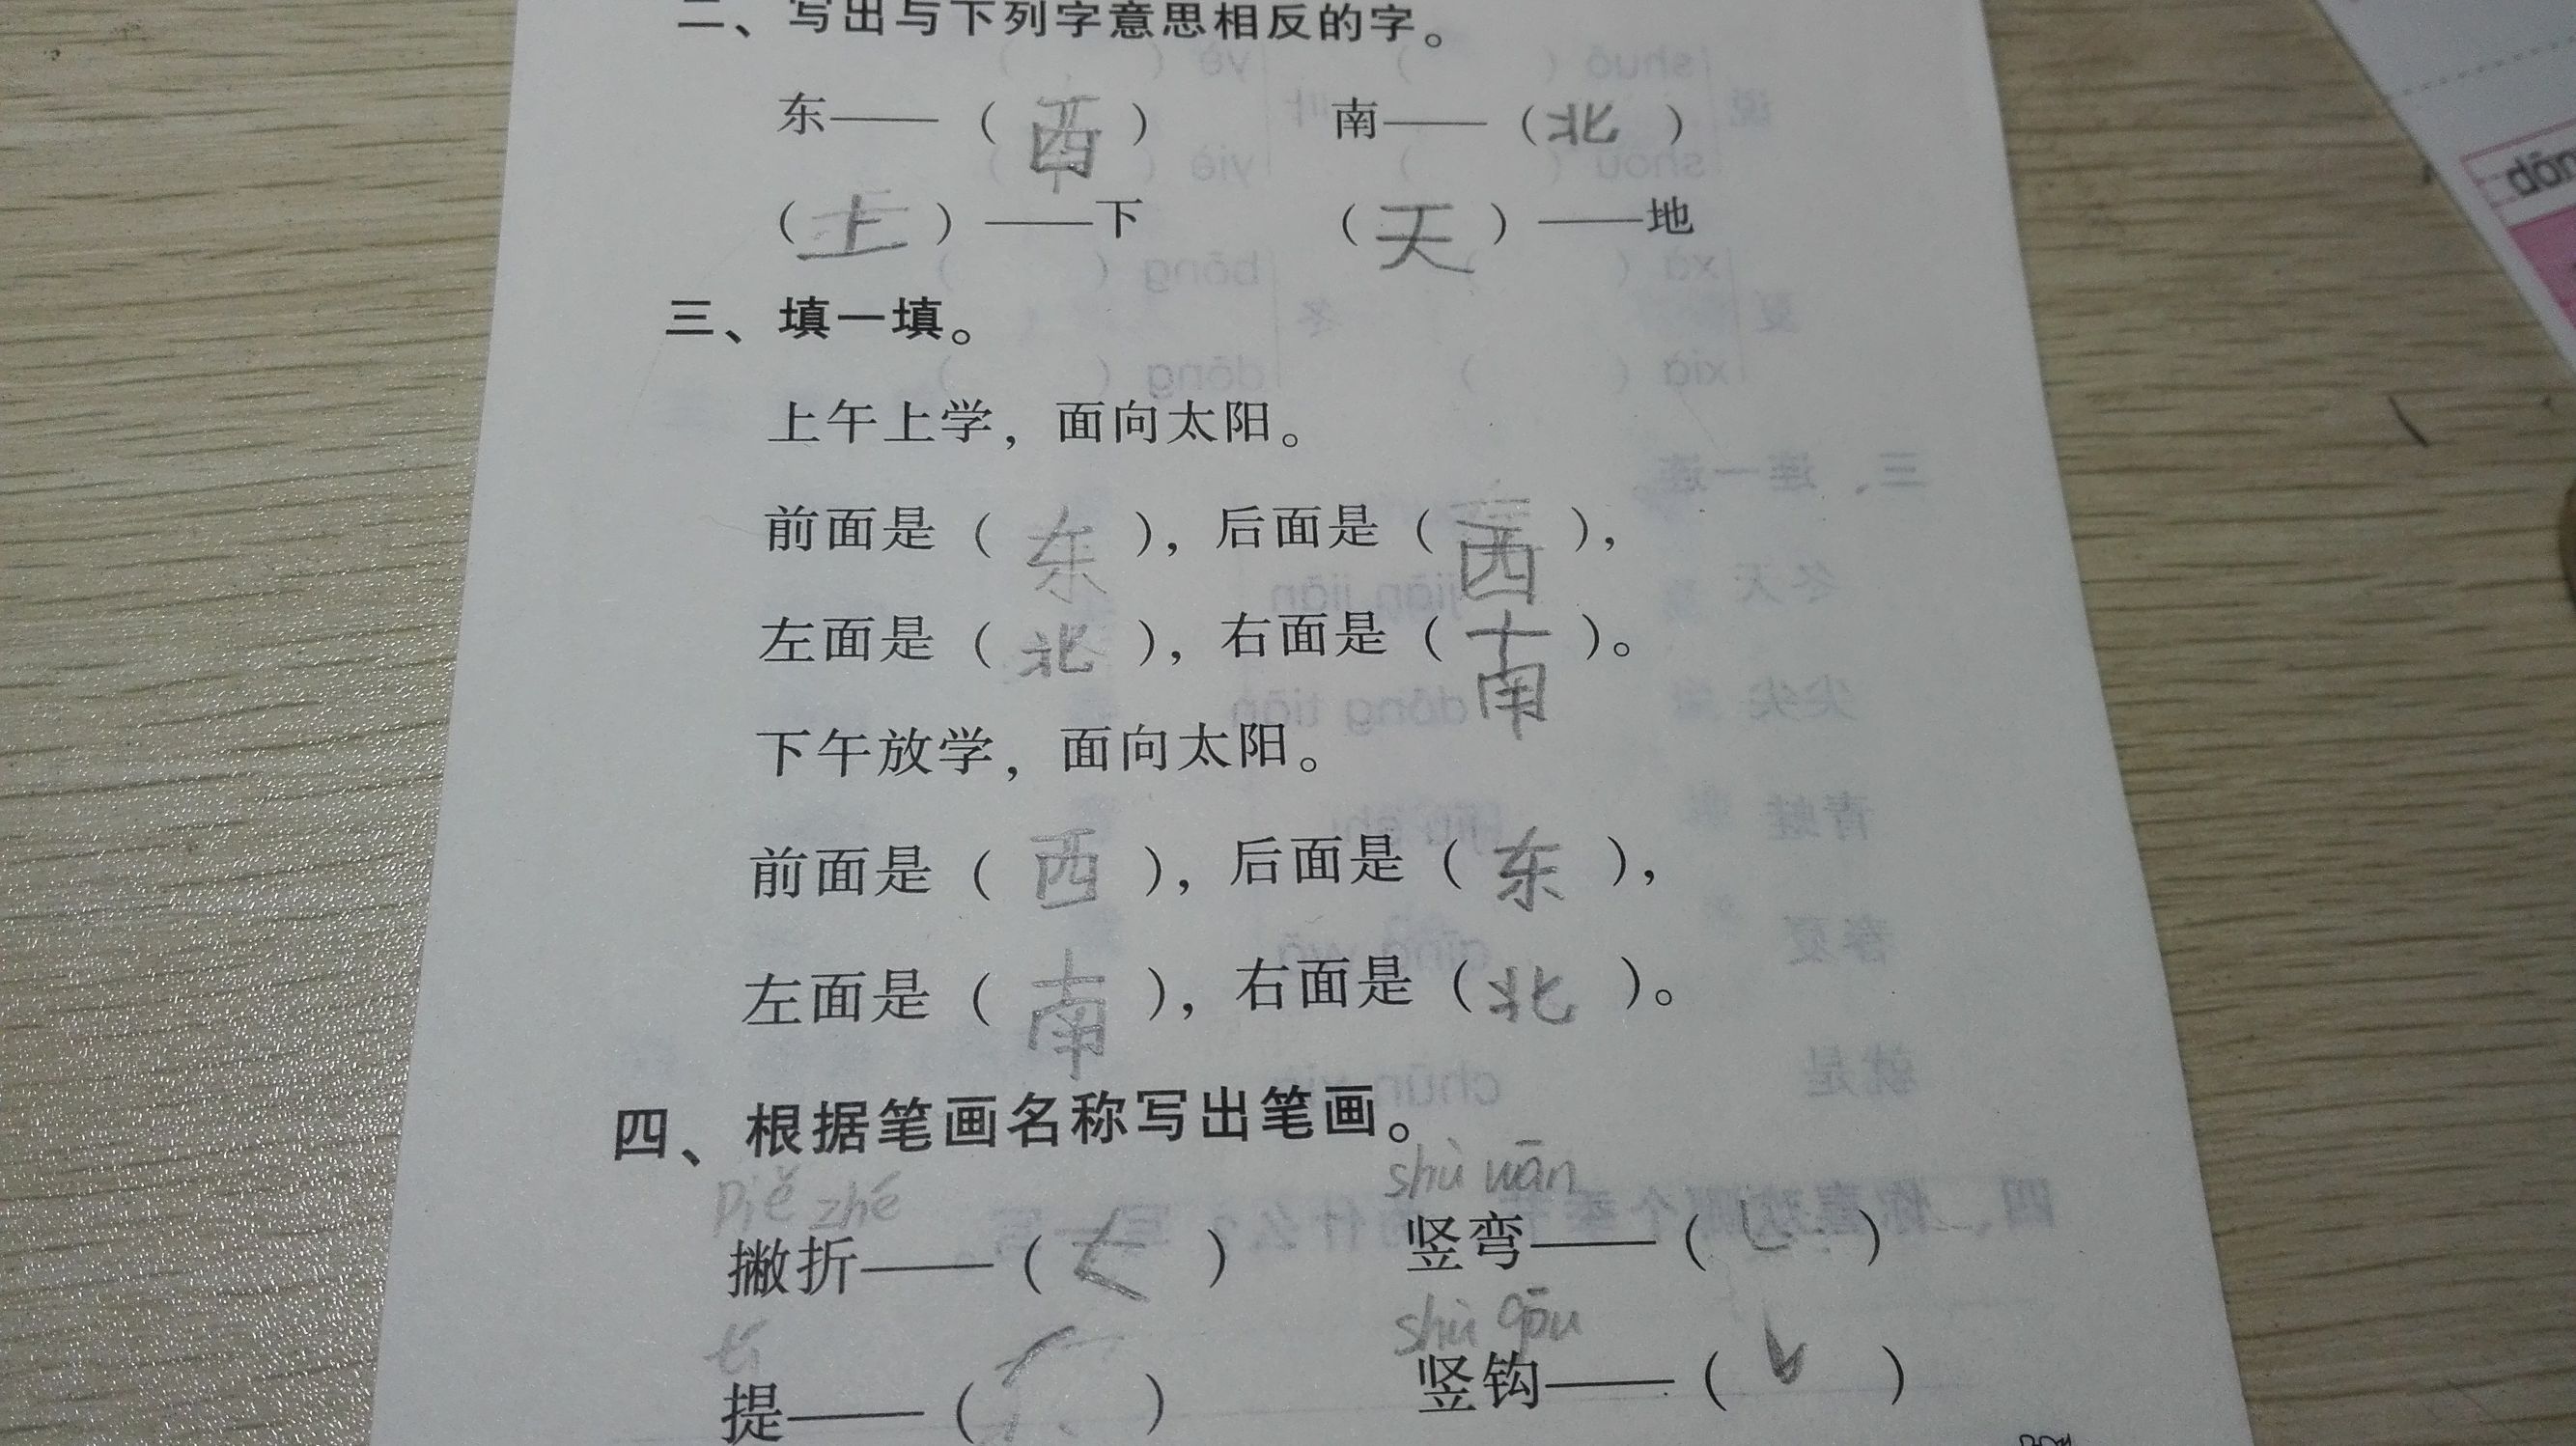 二、写出与下列字意思相反的字。
东——（西） 南——（北）
（上）——下 （天）——地
三、填一填。
上午上学，面向太阳。
前面是（东），后面是（西），
左面是（北），右面是（南）。
下午放学，面向太阳。
前面是（西），后面是（东），
左面是（南），右面是（北）。
四、根据笔画名称写出笔画。
piě zhé shù wān
撇折——（𠃋） 竖弯——（㇄）
tí shù gōu
提——（） 竖钩——（亅）